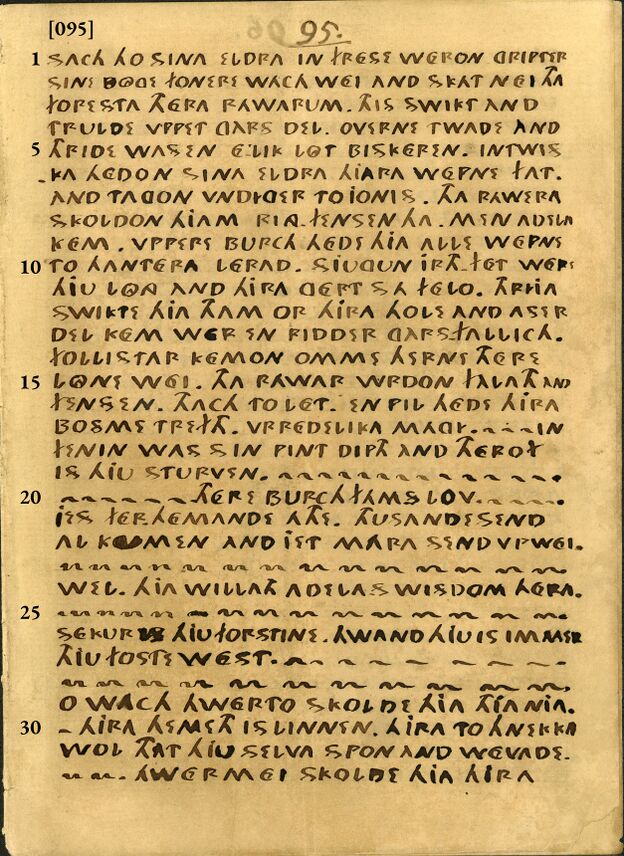 [095]
95.
1 SACH HO SINA ELDRA IN FRESE WERON GRIPTER
SINE BOGE FONERE WACH WEI AND SKAT NEI THA
FORESTA THERA RAWARUM. THIS SWIKT AND
TRULDE VPPET GARS DEL. OVERNE TWADE AND
5 THRIDE WASEN ELIK LOT BISKEREN. INTWIS
-KA HEDON SINA ELDRA HIARA WEPNE FAT.
AND TAGON VNDHGER TO IONIS. THA RAWERA
SKOLDON HIAM RIA-FENSEN HA. MEN ADELA
KEM. VPPERE BURCH HEDE HIA ALLE WEPNE
10 TO HANTERA LERAD. SIUGUN IRTH-FET WERE
HIU LONG AND HIRA GERT SA FELO. THRHIA
SWIKTE HIA THAM OR HIRA HOLE AND AS ER
DEL KEM WER EN RIDDER GARS-FALLICH.
FOLLISTAR KEMON OMME HERNE THERE
15 LONE WEI. THA RAWAR WRDON FALATH AND
FENSEN. THACH TO LET. EN PIL HEDE HIRA
BOSME TREFTH. VRREDELIKA MAGI. IN
FENIN WAS SIN PINT DIPTH AND THEROF
IS HIU STURVEN.
20 THERE BURCHFAMS LOV.
IES FER-HEMANDE ATHE. THUSANDE SEND
AL KUMEN AND IET MARA SEND VPWEI.
WEL. HIA WILLATH ADELAS WISDOM HERA.
25
SEKUR IS HIU FORSTINE. HWAND HIU IS IMMER
THIU FOSTE WEST.
O WACH HWERTO SKOLDE HIA THIANIA.
30 HIRA HEMETH IS LINNEN. HIRA TOHNEKKA
WOL THAT HIU SELVA SPON AND WEVADE.
HWERMEI SKOLDE HIA HIRA